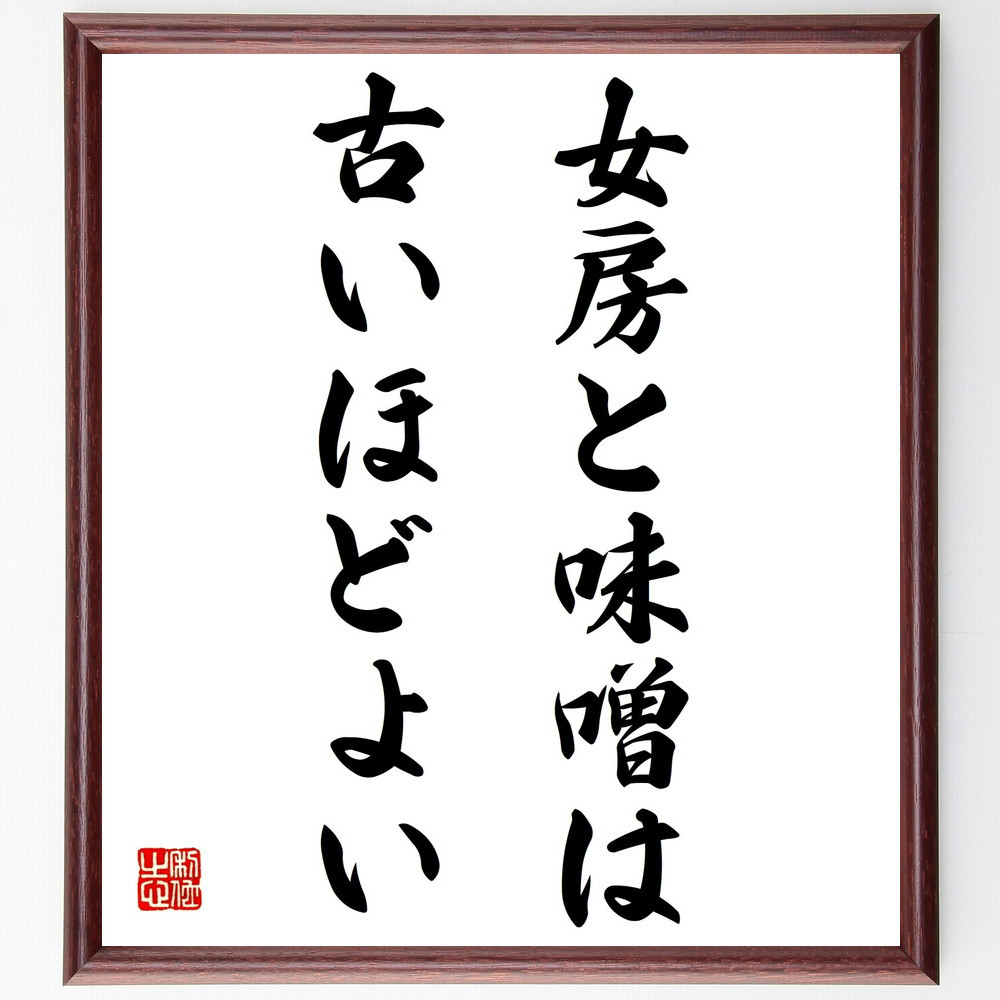 女房と味噌は
古いほどよい